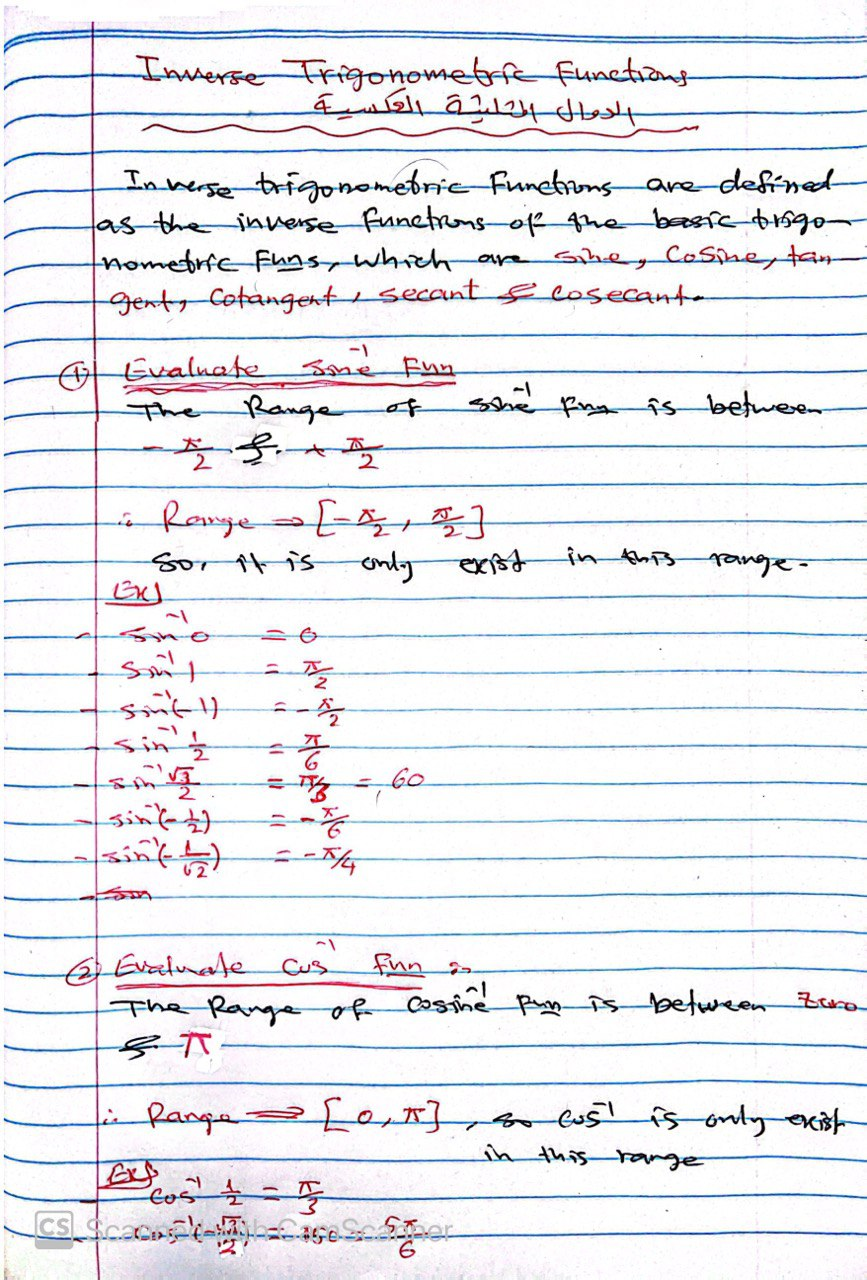 Inverse Trigonometric Functions
الدوال المثلثية العكسية
Inverse trigonometric Functions are defined
as the inverse functions of the basic trigo-
nometric Funs, which are sine, Cosine, tan-
gent, Cotangent, secant & cosecant.
① Evaluate sine⁻¹ Fun
The Range of sine⁻¹ Fun is between
- π/2 & + π/2
∴ Range ⇒ [-π/2, π/2]
So, it is only exist in this range.
Ex)
- sin⁻¹ 0 = 0
- sin⁻¹ 1 = π/2
- sin⁻¹(-1) = -π/2
- sin⁻¹ 1/2 = π/6
- sin⁻¹ √3/2 = π/3 = 60
- sin⁻¹(-1/2) = -π/6
- sin⁻¹(-1/√2) = -π/4
② Evaluate Cos⁻¹ fun
The Range of cosine⁻¹ Fun is between Zero
& π
∴ Range ⇒ [0, π], so cos⁻¹ is only exist
in this range
Ex)
- cos⁻¹ 1/2 = π/3
CS Scanned with CamScanner
- cos⁻¹(√3/2) = 150 5π/6